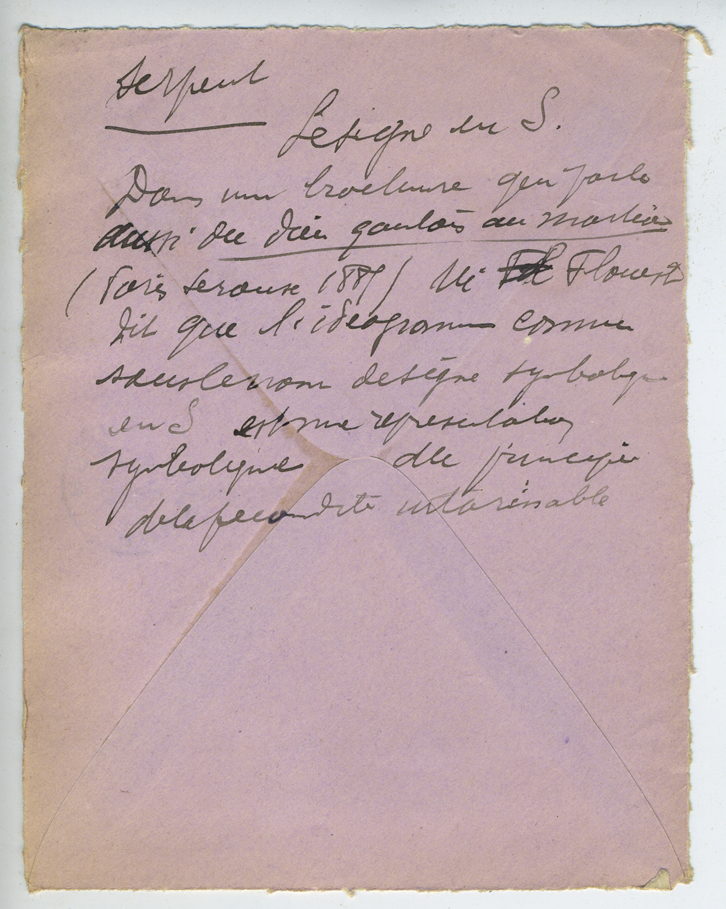 Serpent
Le signe en S.
Dans une brochure qui parle
aussi du dieu gaulois au marteau
(Paris Leroux 188) Mr Flouest
dit que l'ideogramme connu
sous le nom de signe symbolique
en S est une representation
symbolique du principe
de la fecondité intarissable